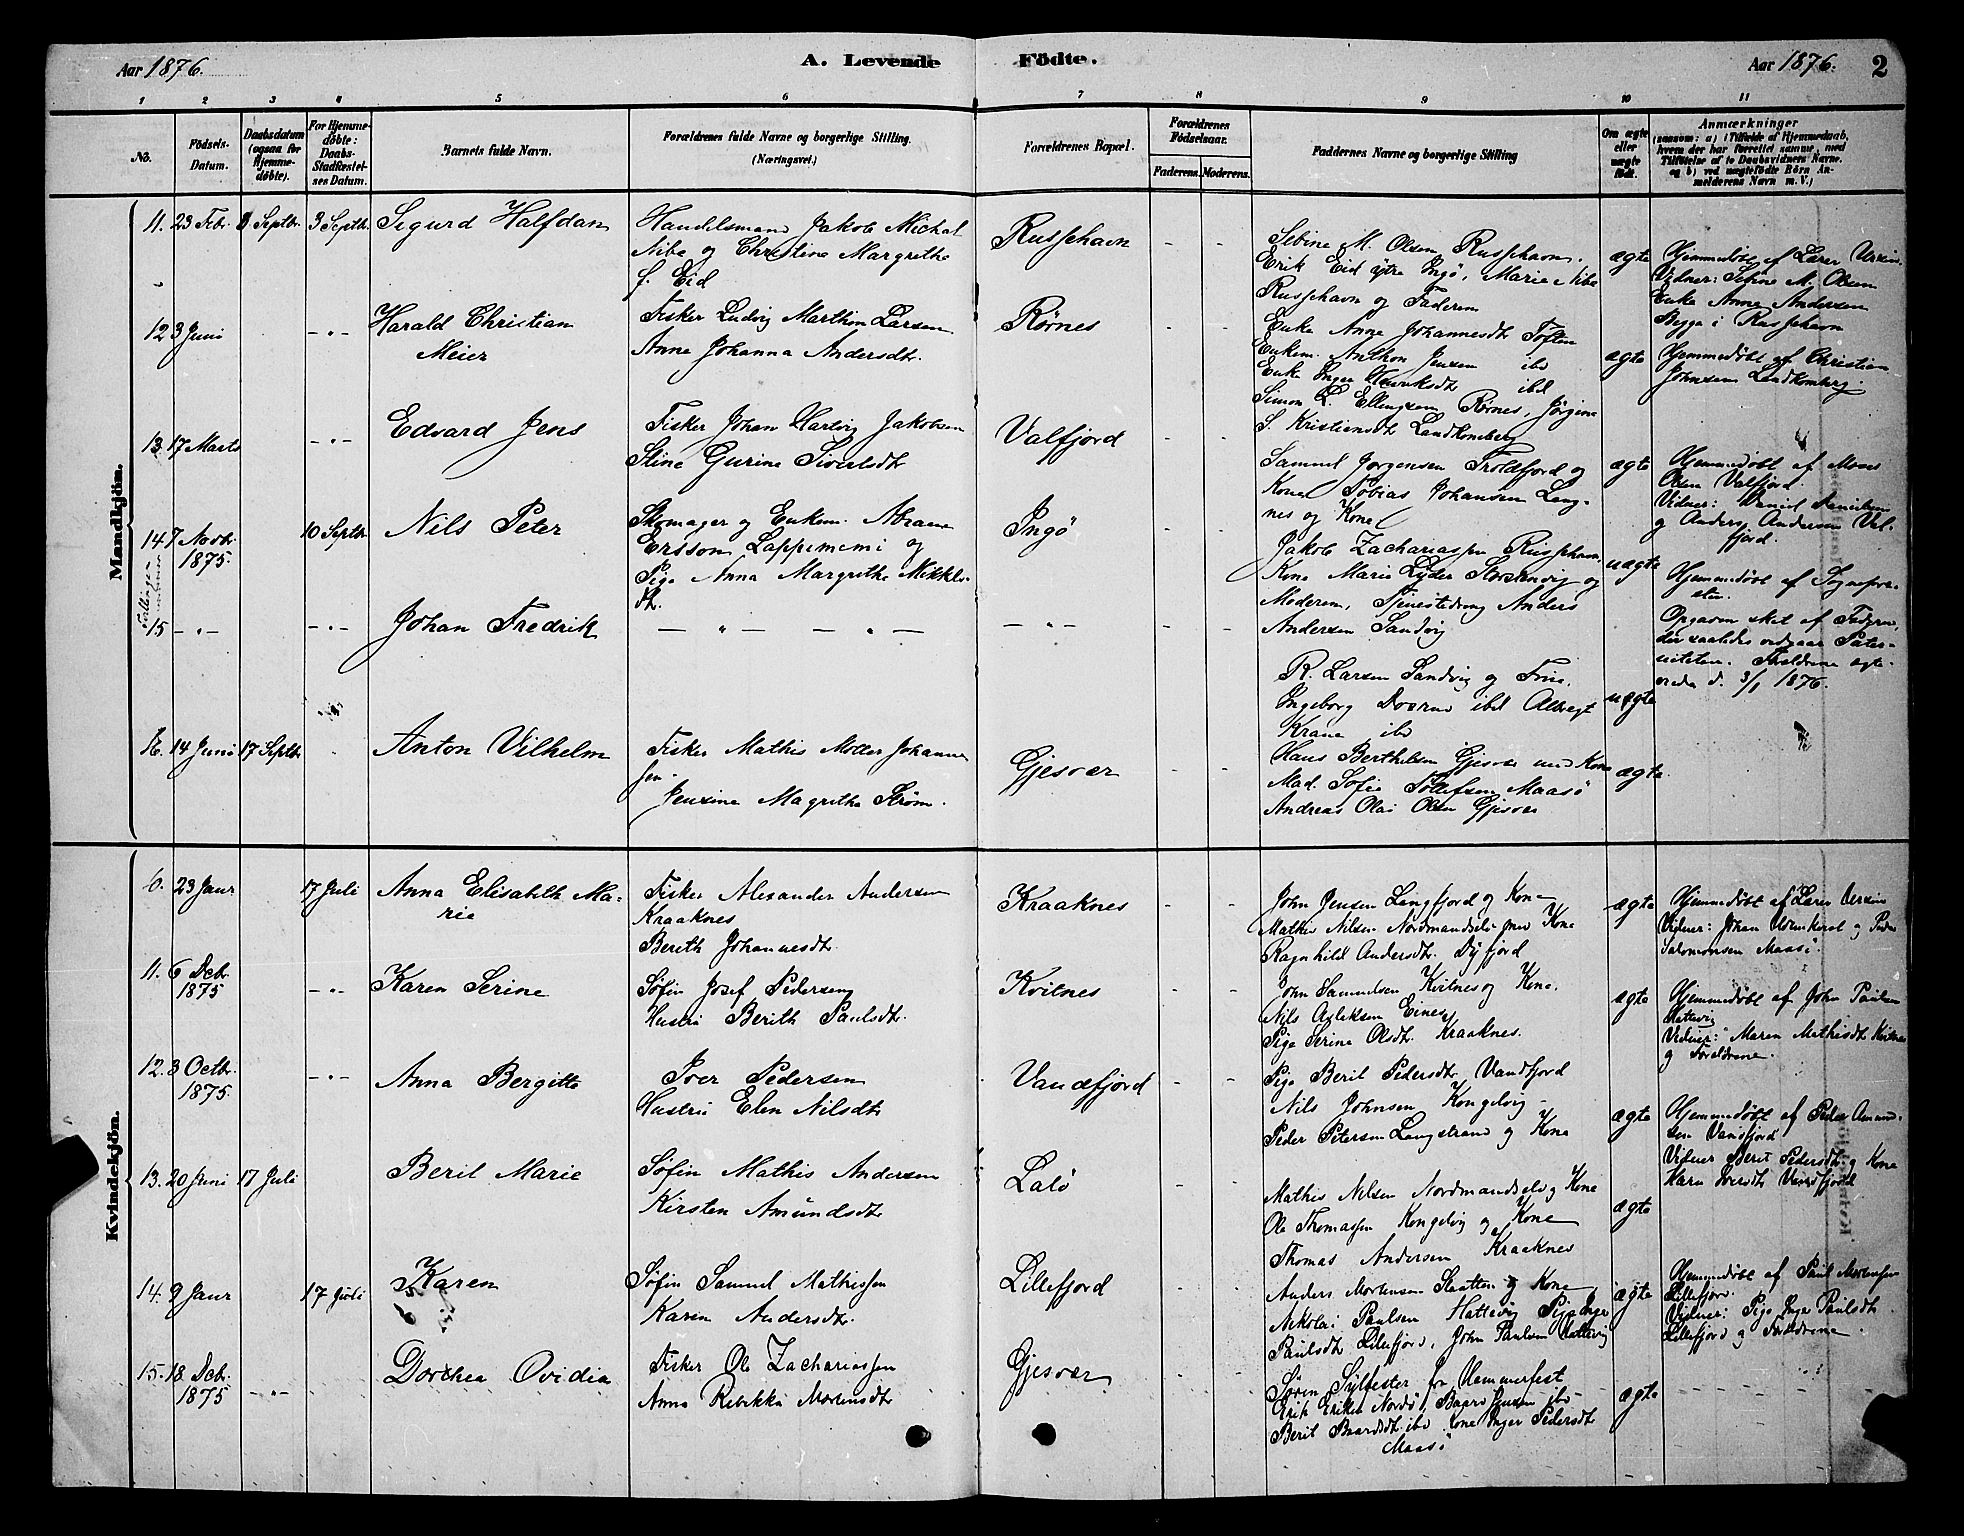 Aar 1876.
A. Levende Födte.
Aar 1876. 2
1 2 3 4 5 6 7 8 9 10 11
No.
Födsels-Datum.
Daabsdatum (ogsaa for Hjemmedöbte).
For Hjemmedöbte: Daabs-Stadfæstelses Datum.
Barnets fulde Navn.
Forældrenes fulde Navne og borgerlige Stilling.
(Næringsvei.)
Forældrenes Bopæl.
Forældrenes Födselsaar.
Faderens. Moderens.
Faddernes Navne og borgerlige Stilling
Om ægte eller uægte födt.
Anmærkninger
(saasom: a) i Tilfælde af Hjemmedaab, hvem der har forrettet samme, med Tilföielse af to Daabsvidners Navne. og b) ved uægtefödte Börn Anmelderens Navn m. V.)
Mandkjön.
11. 23 Febr. 3 Septbr. 3 Septbr. Sigurd Halfdan
Handelsmand Jakob Michal
Niba og Christine Margrethe
f. Eid
Russehavn
Sebine M. Olsen Russehavn.
Erik Eid ytre Ingö, Marie Niba
Russehavn og Faderen
ægte
Hjemmedöbt af Lærer
Vidner: Sefine M. Olsen
Enke Anne Andersen
Begge i Russehavn
12 3 Juni - " - Harald Christian
Meier
Fisker Ludvig Marthin Larsen
Anne Johanna Andersdt.
Rørnes
Enke Anne Johannesdt Toften
Enkem. Anthon Jensen ibd
Enke Inger Henriksdt ibd
Simon L. Ellingsen Rørnes, Jörgine
S. Kristiansdt Landkonsberg
ægte
Hjemmedöbt af Christian
Johnsen Landkomberg.
13. 17 Marts - " - Edvard Jens
Fisker Johan Hartvig Jakobsen
Stine Gurine Siversdt
Valfjord
Samuel Jørgensen Troldfjord og
Kone Tobias Johansen Lang-
nes og Kone
ægte
Hjemmedöbt af Moses
Olsen Valfjord
Vidner: Daniel Danielsen
og Anders Andersen Val-
fjord.
14 7 Novbr 1875. 10 Septbr. Nils Peter
Skomager og Enkem. Abram
Ersson Lappeniemi og
Pige Anna Margrethe Mikkels-
dt.
Ingö
Jakob Zachariassen Russehavn
Kone Marie Lyder og
Moderen, Tjenestedreng Anders
Andersen Sandvig
uægte
Hjemmedöbt af Sognepræ-
sten.
Opgaven sket af Faderen,
der saaledes vedgaar Pater-
niteten. Forældrene ægte-
viede d. 3/1 1876.
Tvillinger
15 - " - - " - Johan Fredrik
- " - - " -
- " -
R. Larsen Sandvig og Frue,
Ingeborg ibd Albregt
Krane ib
uægte
16. 14 Juni 17 Septbr. Anton Vilhelm
Fisker Mathis Møller Johannes-
sen.
Jensine Magrethe Strøm.
Gjesvær
Hans Berthelsen Gjesvær med Kone
Mad. Sofie Tollefsen Maasö
Andreas Olai Olsen Gjesvær
ægte.
Kvindekjön.
10. 23 Janr 17 Juli Anna Elisabeth Ma-
rie
Fisker Alexander Andersen
Kraaknes
Berith Johannesdt.
Kraaknes
John Jensen Langfjord og Kone
Mathis Nilsen Nordmandselv og Kone
Ragnhild Andersdt Dyfjord
ægte
Hjemmedöbt af Lærer
Vidner: Johan og Peder
Salomonsen Maasö.
11. 6 Dcbr. 1875 - " - Karen Serine
Søfin Josef Pedersen
Hustru Berith Paulsdt.
Kvitnes
John Samuelsen Kvitnes og Kone.
Nils Aslaksen Eines
Pige Serine Olsdt. Kraaknes.
ægte
Hjemmedöbt af John Paulsen
Hattevig
Vidner: Maren Mathisdt Kvitnes
og Forældrene.
12. 3 Octbr. 1875. - " - Anna Bergitte
Iver Pedersen
Hustru Elen Nilsdt
Vandfjord
Pige Berit Pedersdt Vandfjord
Nils Johnsen Kongelvig -
Peder Petersen Langstrand og Kone
ægte
Hjemmedöbt af Peder Amund-
sen Vandfjord
Vidner Berit Pedersdt og Kone
Karn Iversdt Vandfjord
13. 20 Juni 17 Juli Beril Marie
Søfin Mathis Andersen
Kirsten Amundsdt
Lalö
Mathis Nilsen Nordmandselv og Kone
Ole Thomassen Kongelvig og Kone
Thomas Andersen Kraaknes
ægte
14. 9 Janr 17 Juli Karen
Søfin Samuel Mathissen
Karen Andersdt.
Lillefjord
Anders Mortensen Slaatten og Kone
Nikolai Paulsen Hattevig Pige Inger
Paulsdt Lillefjord, John Paulsen Hattevig
ægte
Hjemmedöbt af Paul Mortensen
Lillefjord.
Vidner: Pige Inger Paulsdt.
Lillefjord og Forældrene
15. 18 Dcbr. 1875 - " - Dorthea Ovidia
Fisker Ole Zachariassen
Anne Rebekka Mortensdt
Gjesvær
Søren Sylfester fra Hammerfest
Erik Eriksen Nordö, Baard Jensen ibd -
Berit Baardsdt. ibd. Kone Inger Pedersdt
Maasö
ægte